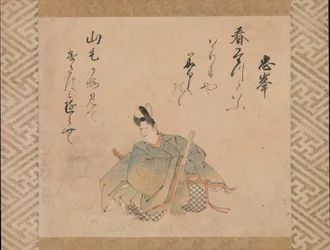 忠峯
春たつといふ
はかりにや
みよしのゝ
山毛かす見て
けさは三ゆらむ